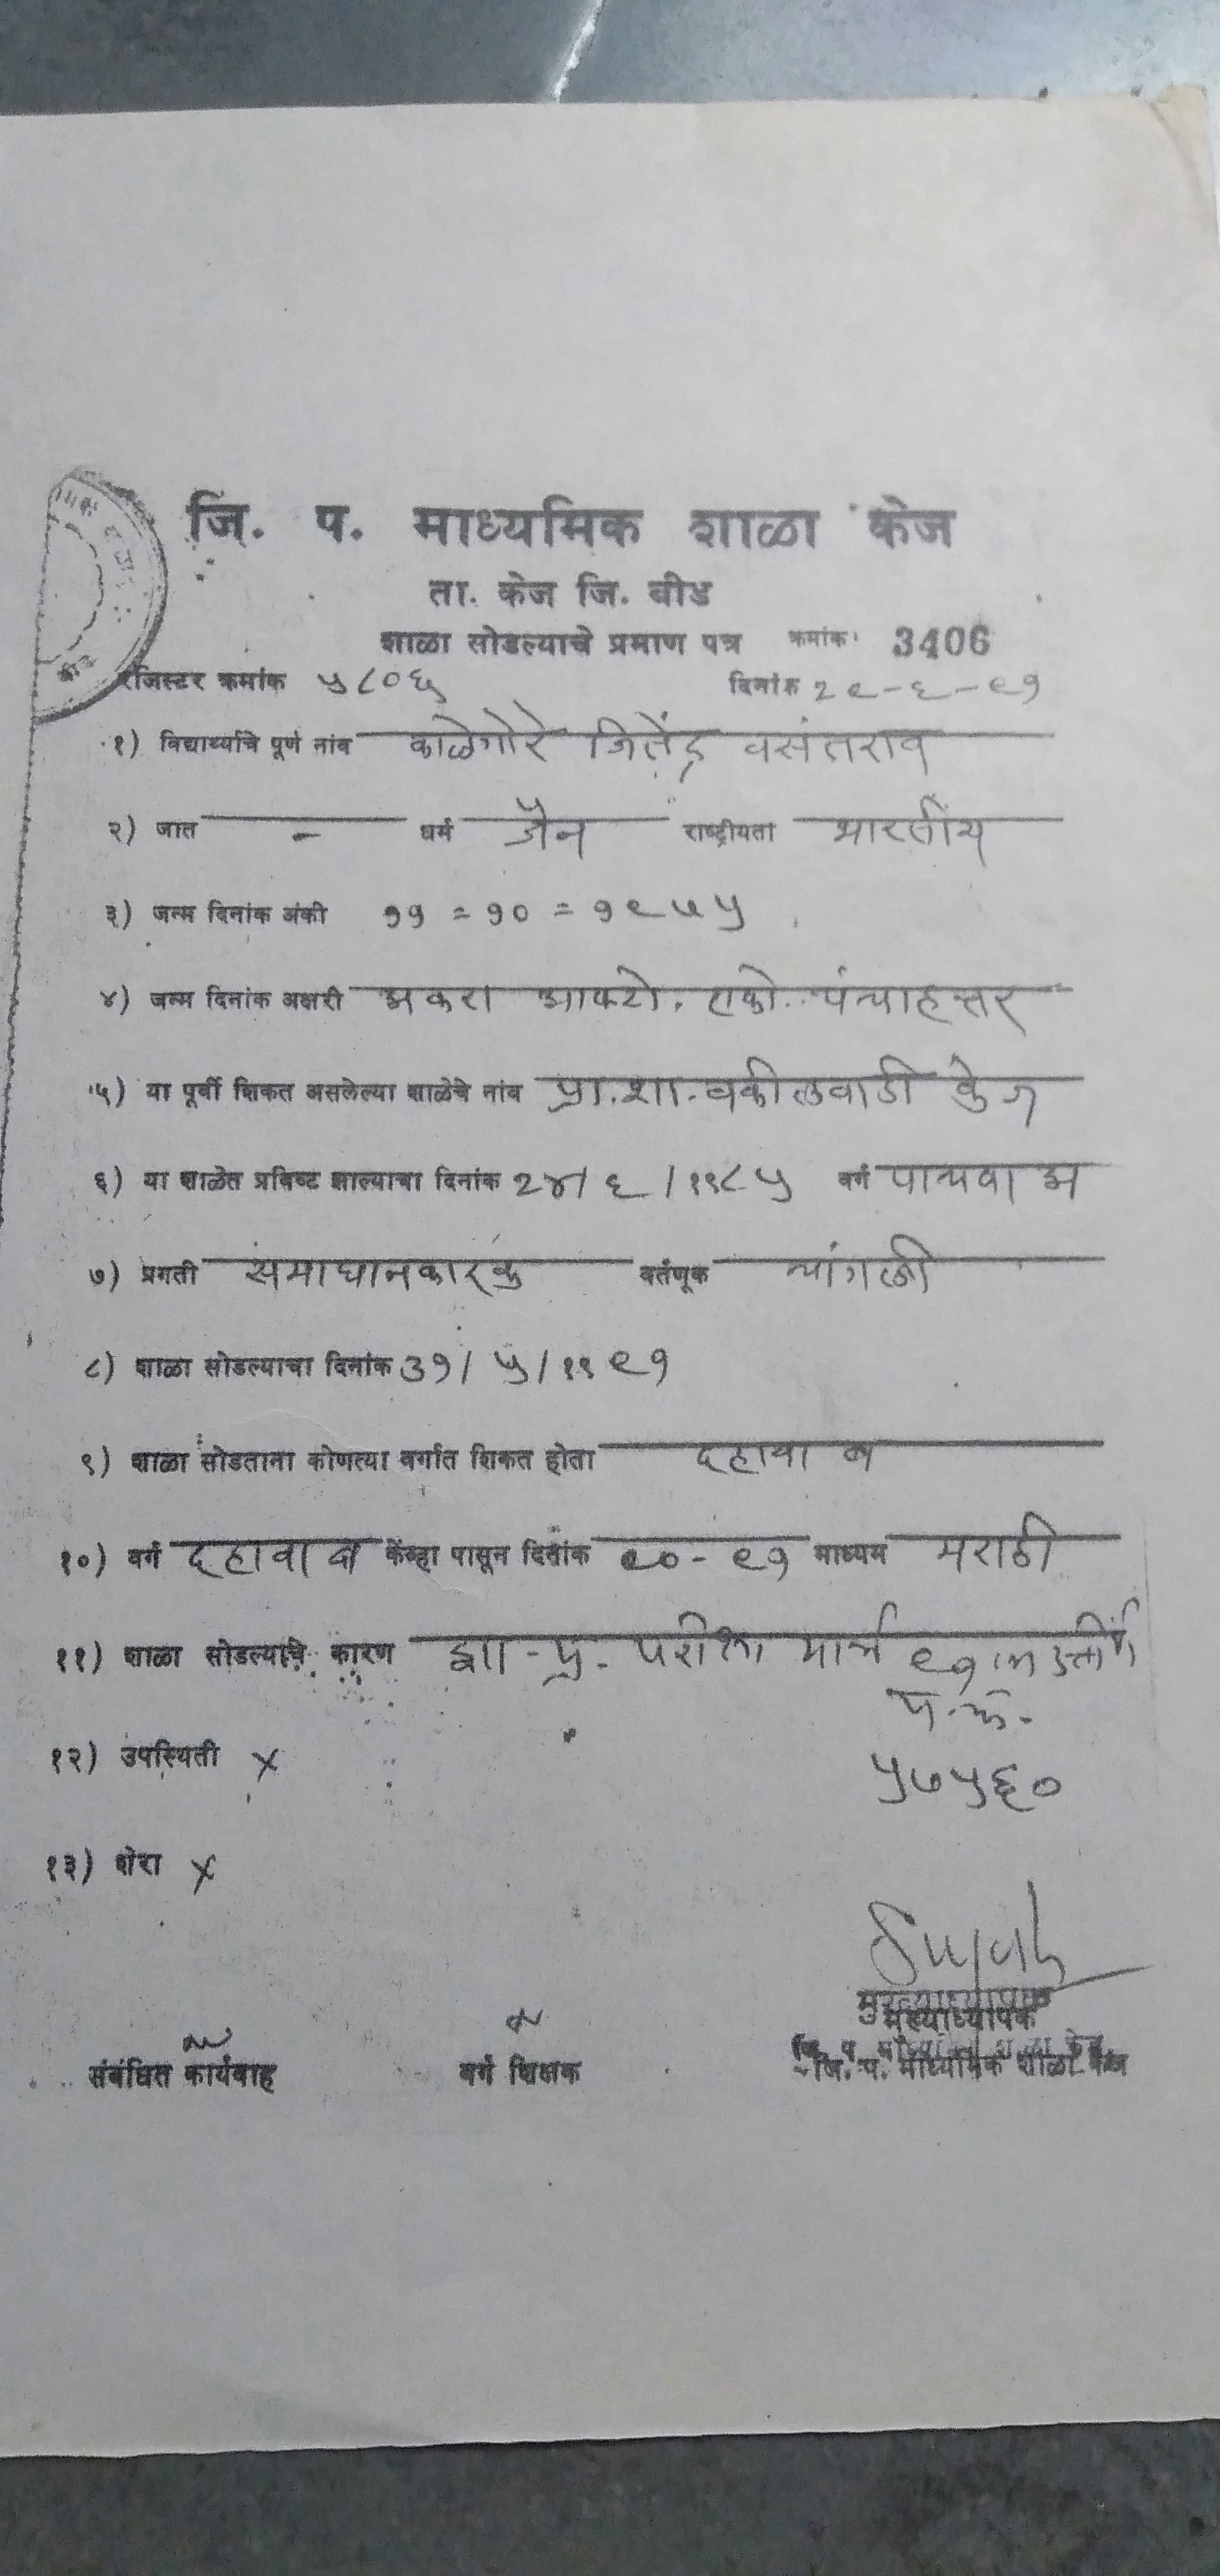 जि. प. माध्यमिक शाळा केज
ता. केज जि. बीड
शाळा सोडल्याचे प्रमाण पत्र क्रमांक: 3406
रजिस्टर क्रमांक ५८०६ दिनांक २९-६-९१
१) विद्यार्थ्याचे पूर्ण नांव काळेगोरे जितेंद्र वसंतराव
२) जात - धर्म जैन राष्ट्रीयता भारतीय
३) जन्म दिनांक अंकी ११=१०=१९७५
४) जन्म दिनांक अक्षरी अकरा आक्टो. एको. पंचाहत्तर
५) या पूर्वी शिकत असलेल्या शाळेचे नांव प्रा.शा.वकीलवाडी केज
६) या शाळेत प्रविष्ट झाल्याचा दिनांक २४/६/१९८५ वर्ग पाचवा अ
७) प्रगती समाधानकारक वर्तणूक चांगली
८) शाळा सोडल्याचा दिनांक ३१/५/१९९१
९) शाळा सोडताना कोणत्या वर्गात शिकत होता दहावा ब
१०) वर्ग दहावा ब केंव्हा पासून दिनांक ९०-९१ माध्यम मराठी
११) शाळा सोडल्याचे कारण शा-प्र. परीक्षा मार्च ९१ उत्तीर्ण
प.क्र.
५७५६०
१२) उपस्थिती x
१३) शेरा x
मुख्याध्यापक
संबंधित कार्यवाह वर्ग शिक्षक जि. प. माध्यमिक शाळा केज